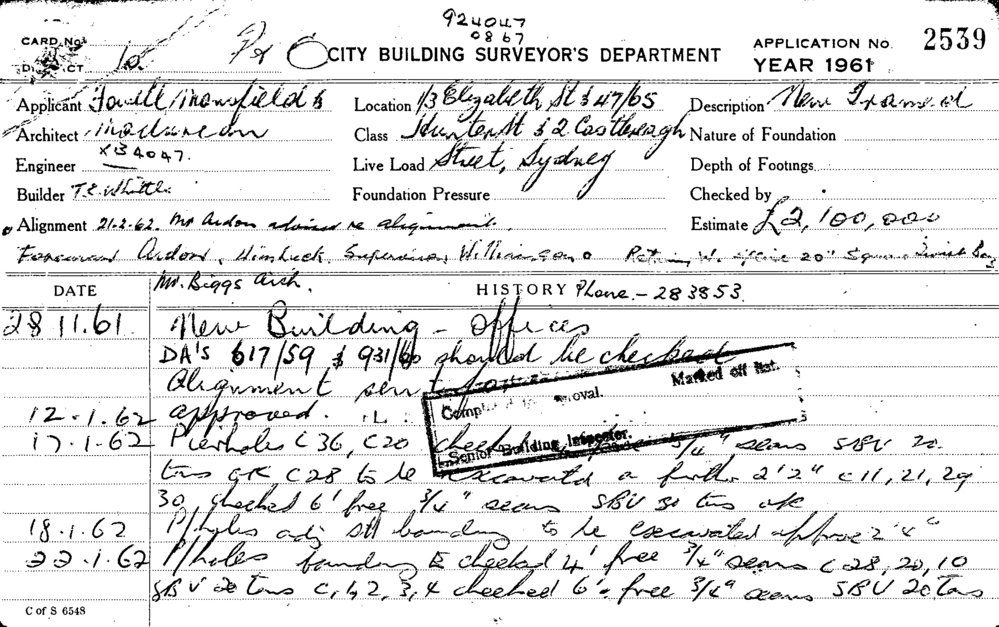 924047
0867
CARD No.
CITY BUILDING SURVEYOR'S DEPARTMENT
APPLICATION No. 2539
DISTRICT 10
YEAR 1961
Applicant Fowell, Mansfield &
Location 1/3 Elizabeth St & 47/65
Description New Framed
Architect Maclurcan
Class Hunter St & 2 Castlereagh
Nature of Foundation
Engineer XB4047.
Live Load Street, Sydney
Depth of Footings
Builder T.C. Whittle
Foundation Pressure
Checked by
Alignment 21.2.62. Mr Ardon advised re alignment.
Estimate £2,100,000
Foreman Ardon, Supervisor Williamson
20" Square
Mr. Biggs Arch.
DATE
HISTORY Phone - 283853
28 11.61 New Building - Offices
DA'S 617/59 & 931/60 should be checked
Alignment sent for
Marked off list.
12.1.62 approved.
Senior Building Inspector.
17.1.62 Pierholes C36, C20 checked 3/4" seams SBV 20
tons OK C28 to be excavated a further 2'2" C11, 21, 29
30, checked 6' free 3/4" seams SBV 30 tons ok
18.1.62 P/holes adj sth boundary to be excavated approx 2'4"
22.1.62 P/holes boundary E checked 4' free 3/4" seams C28, 20, 10
SBV 20 tons C1, 2, 3, 4 checked 6' free 3/4" seams SBV 20 tons
C of S 6548